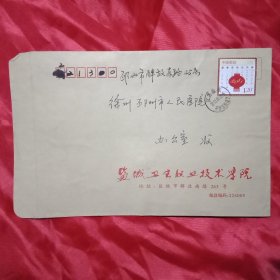 221300
邳州市解放东路25号
徐州邳州市人民医院
办公室 收
中国邮政
1.20元
盐城卫生职业技术学院
地址：盐城市解放南路263号
邮政编码：224005